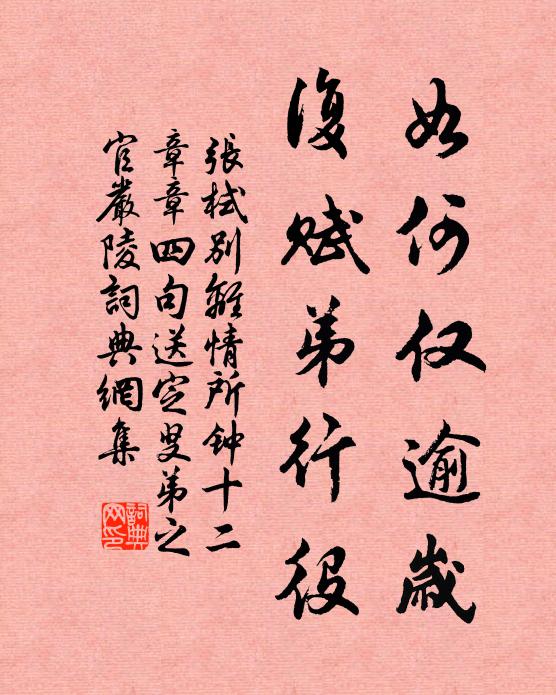 如何仅逾歲
復赋弟行役
張栻别離情所钟十二
章章四句送定叟弟之
官嚴陵詞典網集
詞典网印